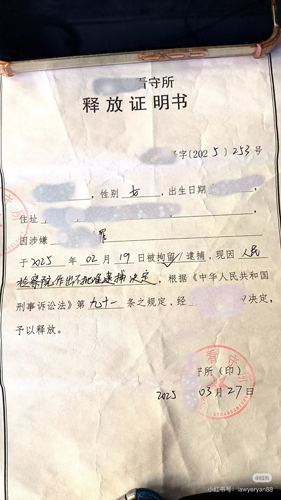 看守所
释放证明书
字[2025]253号
，性别 女 ，出生日期
住址
因涉嫌 罪
于2025年02月19日被拘留/逮捕，现因人民
检察院作出不批准逮捕决定，根据《中华人民共和国
刑事诉讼法》第九十一条之规定，经 决定，
予以释放。
看守所
所（印）
2025 03月27日
小红书
小红书号：lawyeryan88